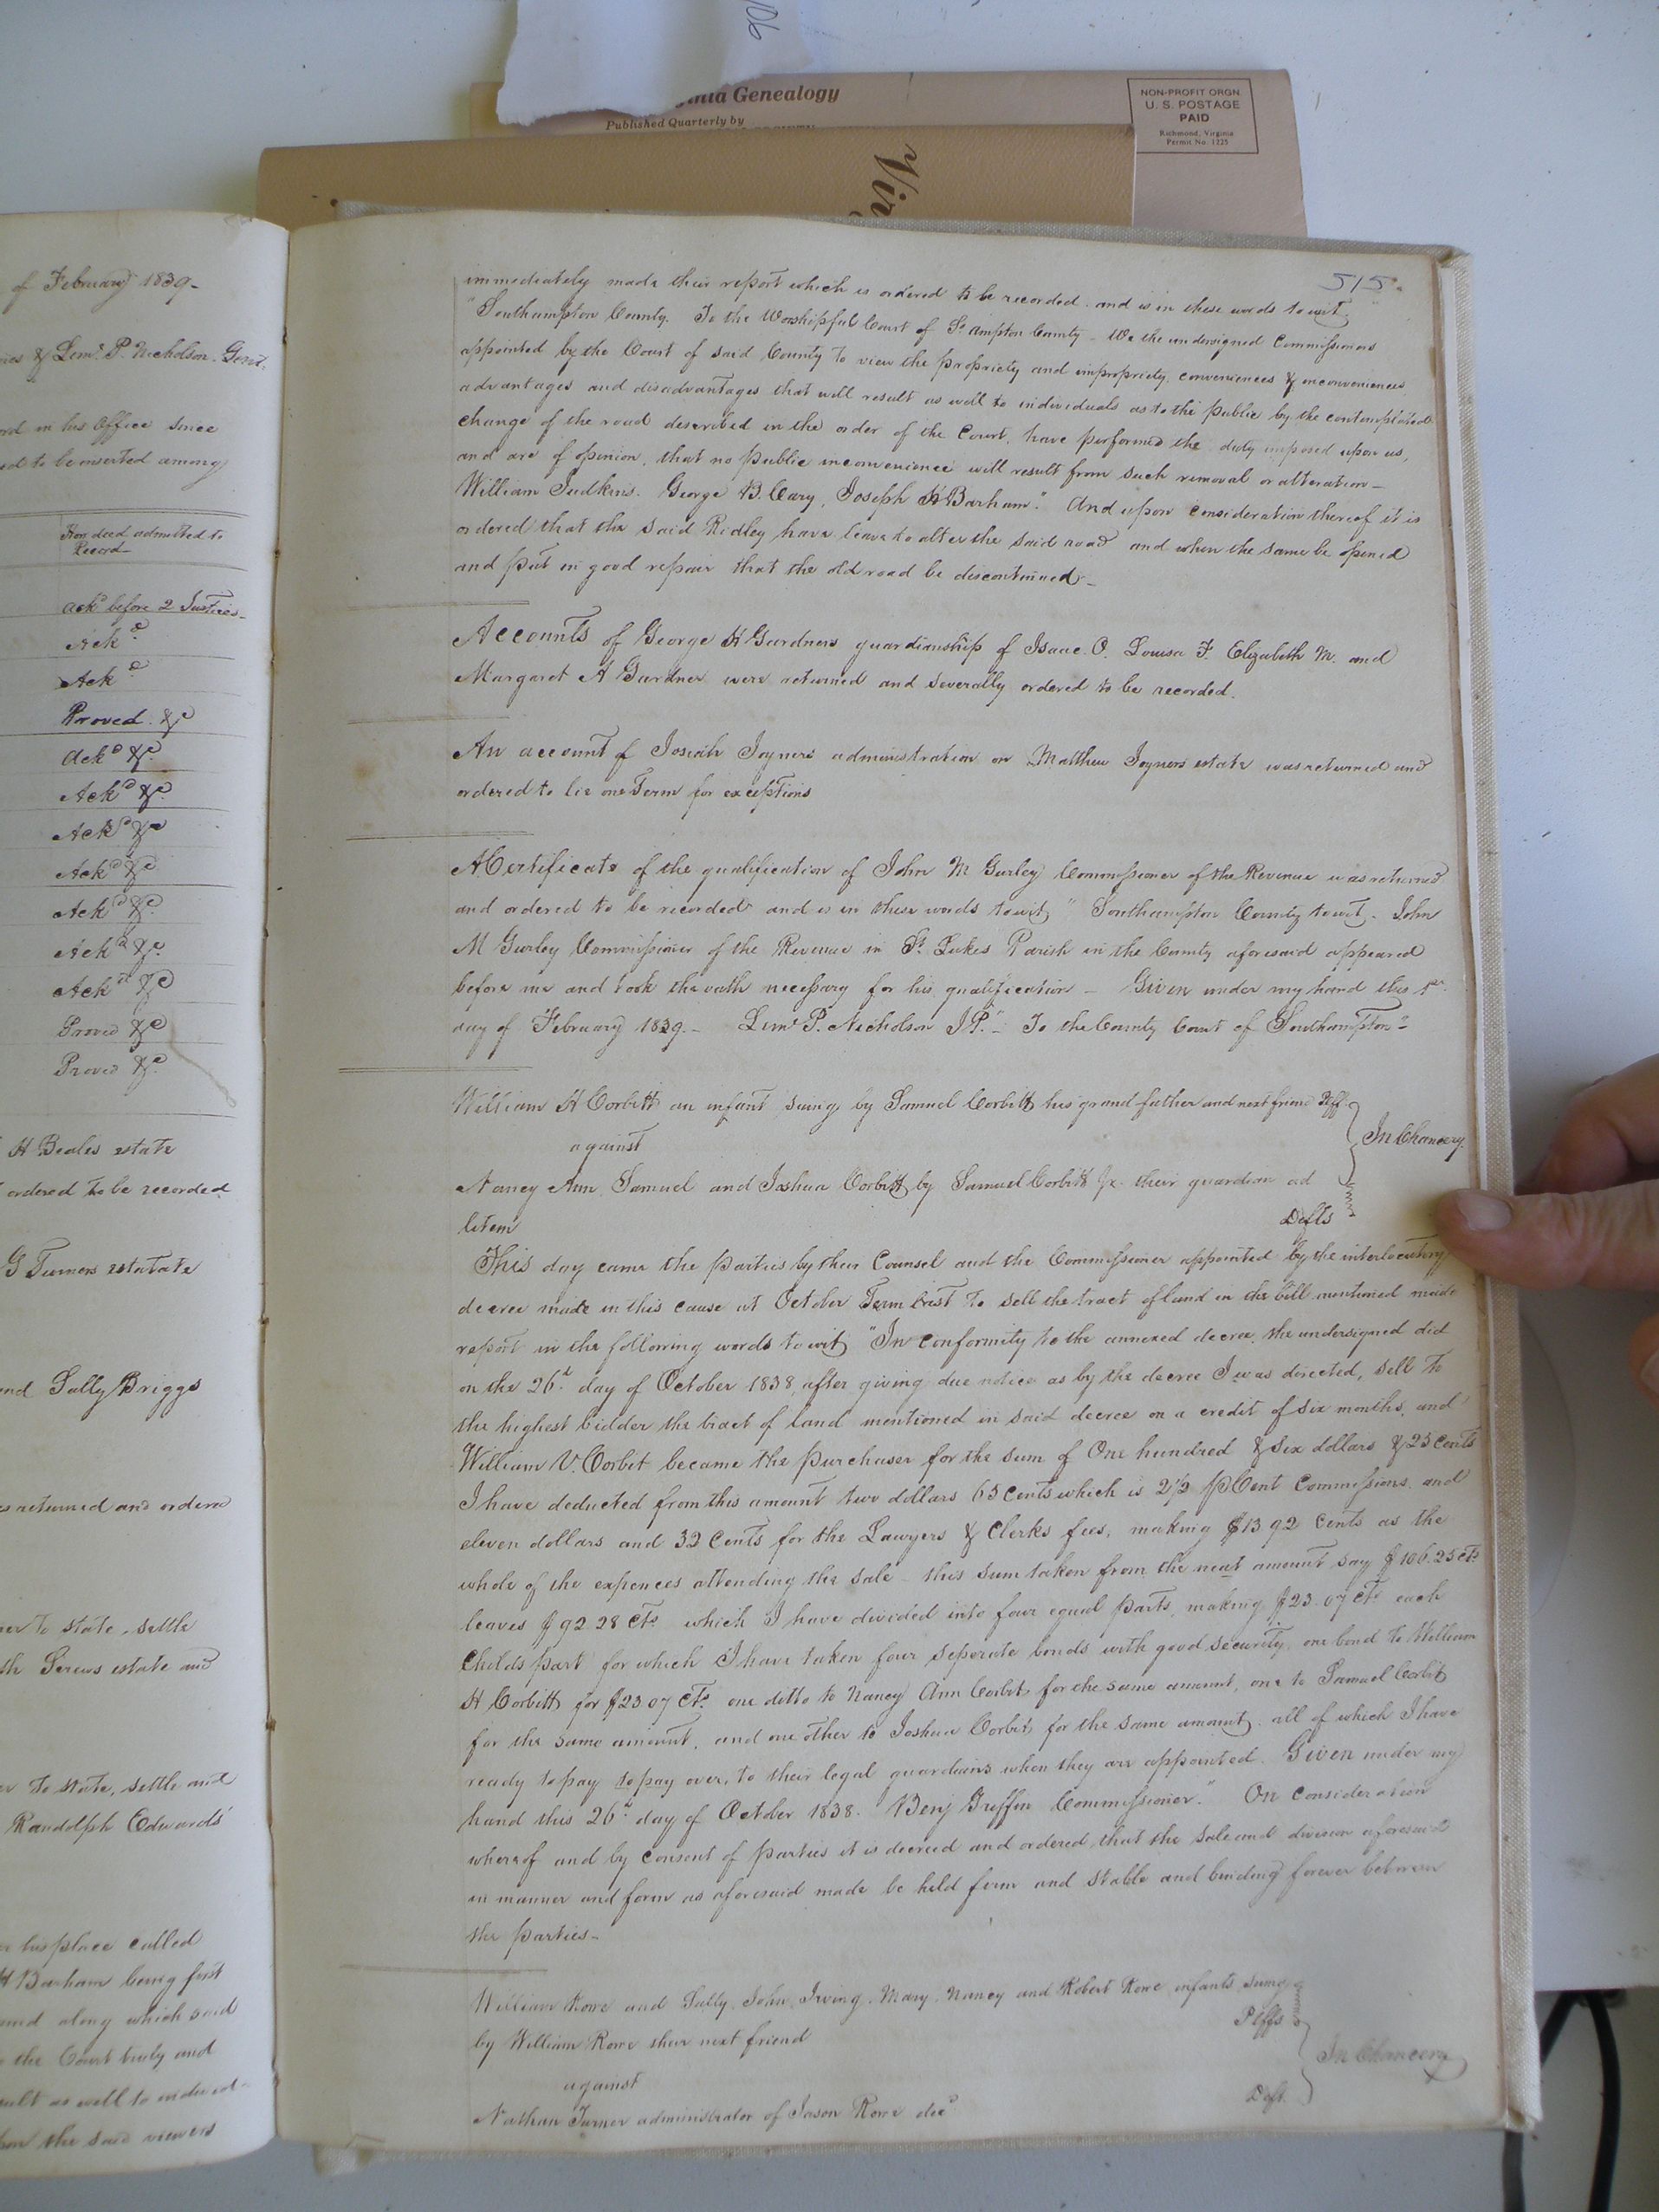 06
Virginia Genealogy
Published Quarterly by
NON-PROFIT ORGN.
U. S. POSTAGE
PAID
Richmond, Virginia
Permit No. 1225
Vir
of February 1839-
& Lemˡ P. Nicholson. Gent.
in his Office since
to be inserted among
How deed admitted to
Record-
ackᵈ before 2 Justices-
Ackᵈ
Ackᵈ
Proved &c
Ackᵈ &c.
Ackᵈ &c.
Ackᵈ &c
Ackᵈ &c
Ackᵈ &c.
Ackᵈ &c.
Ackᵈ &c
Proved &c
Proved &c.
H Beales estate
ordered to be recorded
G Turners estatate
and Sally Briggs
returned and ordered
to state, settle
Screws estate and
To state, settle and
Randolph Edwards'
his place called
H Barham being first
along which said
the Court truly and
as well to individ-
the said viewers
515.
immediately made their report which is ordered to be recorded and is in these words to wit,
"Southampton County. To the Worshipful Court of Sº.ampton County - We the undersigned Commissioners
appointed by the Court of said County to view the propriety and impropriety, conveniences & inconveniences
advantages and disadvantages that will result as well to individuals as to the public by the contemplated
change of the road described in the order of the Court, have performed the duty imposed upon us,
and are of opinion, that no public inconvenience will result from such removal or alteration-
William Judkins. George B. Cary, Joseph H Barham." And upon consideration thereof it is
ordered that the said Ridley have leave to alter the said road and when the same be opened
and put in good repair that the old road be discontinued-
Accounts of George H Gardners guardianship of Isaac. O. Louisa F. Elizabeth M. and
Margaret A Gardner were returned and severally ordered to be recorded.
An account of Josiah Joyners administration on Matthew Joyners estate was returned and
ordered to lie one Term for exceptions
A Certificate of the qualification of John M Gurley Commissioner of the Revenue was returned
and ordered to be recorded and is in these words to wit, "Southampton County to wit. John
M Gurley Commissioner of the Revenue in Sᵗ. Lukes Parish in the County aforesaid appeared
before me and took the oath necessary for his qualification - Given under my hand this 1ˢᵗ.
day of February 1839.- Lemˡ P. Nicholson J.P." - To the County Court of Southampton"
William H Corbitt an infant suing by Samuel Corbitt his grand father and next friend Plff.
In Chancery.
against
Nancy Ann, Samuel and Joshua Corbitt by Samuel Corbitt Jr. their guardian ad
litem Defts
This day came the parties by their Counsel and the Commissioner appointed by the interlocutory
decree made in this cause at October Term last to sell the tract of land in the bill mentioned made
report in the following words to wit, "In conformity to the annexed decree, the undersigned did
on the 26ᵗʰ day of October 1838, after giving due notice as by the decree I was directed, sell to
the highest bidder the tract of land mentioned in said decree on a credit of six months, and
William V. Corbit became the purchaser for the sum of One hundred & six dollars & 25 cents
I have deducted from this amount two dollars 65 cents which is 2 1/2 pCent Commissions and
eleven dollars and 32 cents for the Lawyers & Clerks fees, making $13.92 cents as the
whole of the expences attending the sale - this sum taken from the neat amount say $106.25 cts
leaves $92.28 Cts. which I have divided into four equal parts, making $23.07 Cts. each
Childs part for which I have taken four seperate bonds with good security, one bond to William
H Corbitt for $23.07 Cts. one ditto to Nancy Ann Corbit for the same amount, one to Samuel Corbit
for the same amount, and one other to Joshua Corbit for the same amount. all of which I have
ready to pay to pay over, to their legal guardians when they are appointed. Given under my
hand this 26ᵗʰ day of October 1838. Benj Griffin Commissioner." On Consideration
whereof and by consent of parties it is decreed and ordered, that the sale and division aforesaid
in manner and form as aforesaid made be held firm and stable and binding forever between
the parties-
William Rowe and Sally, John, Irving, Mary, Nancy and Robert Rowe infants suing
by William Rowe their next friend Plffs
In Chancery
against
Nathan Turner administrator of Jason Rowe decᵈ Deft.